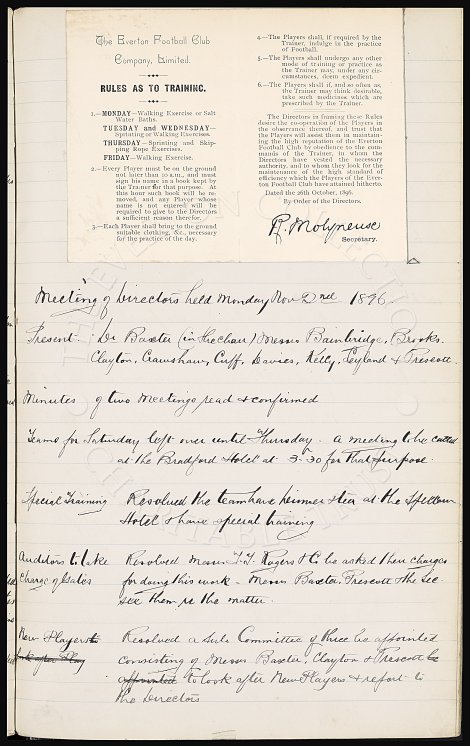 The Everton Football Club
Company, Limited.
RULES AS TO TRAINING.
1.—MONDAY—Walking Exercise or Salt
Water Baths.
TUESDAY and WEDNESDAY—
Sprinting or Walking Exercises.
THURSDAY—Sprinting and Skip-
ping Rope Exercises.
FRIDAY—Walking Exercise.
2.—Every Player must be on the ground
not later than 10 a.m., and must
sign his name in a book kept by
the Trainer for that purpose. At
this hour such book will be re-
moved, and any Player whose
name is not entered will be
required to give to the Directors
a sufficient reason therefor.
3.—Each Player shall bring to the ground
suitable clothing, &c., necessary
for the practice of the day.
4.—The Players shall, if required by the
Trainer, indulge in the practice
of Football.
5.—The Players shall undergo any other
mode of training or practice as
the Trainer may, under any cir-
cumstances, deem expedient.
6.—The Players shall if, and so often as,
the Trainer may think desirable,
take such medicines which are
prescribed by the Trainer.
The Directors in framing these Rules
desire the co-operation of the Players in
the observance thereof, and trust that
the Players will assist them in maintain-
ing the high reputation of the Everton
Football Club by obedience to the com-
mands of the Trainer, in whom the
Directors have vested the necessary
authority, and to whom they look for the
maintenance of the high standard of
efficiency which the Players of the Ever-
ton Football Club have attained hitherto.
Dated the 26th October, 1896.
By Order of the Directors.
R. Molyneux
Secretary.
Meeting of Directors held Monday Nov 2nd 1896.
Present: Dr Baxter (in the chair) Messrs Bainbridge, Brooks.
Clayton, Crawshaw, Cuff, Davies, Kelly, Leyland & Prescott
Minutes of two meetings read & confirmed
Teams for Saturday left over until Thursday. a meeting to be called
at the Bradford Hotel at 3-30 for that purpose.
Special Training Resolved the team have dinner & tea at the Spellow
Hotel & have special training
Auditors to take Resolved Messrs Rogers & Co be asked their charges
charge of Gates for doing this work. Messrs Baxter, Prescott & the Sec
see them re the matter.
New Players to Resolved a Sub Committee of three be appointed
look after Play consisting of Messrs Baxter, Clayton & Prescott be
appointed to look after New Players & report to
the Directors